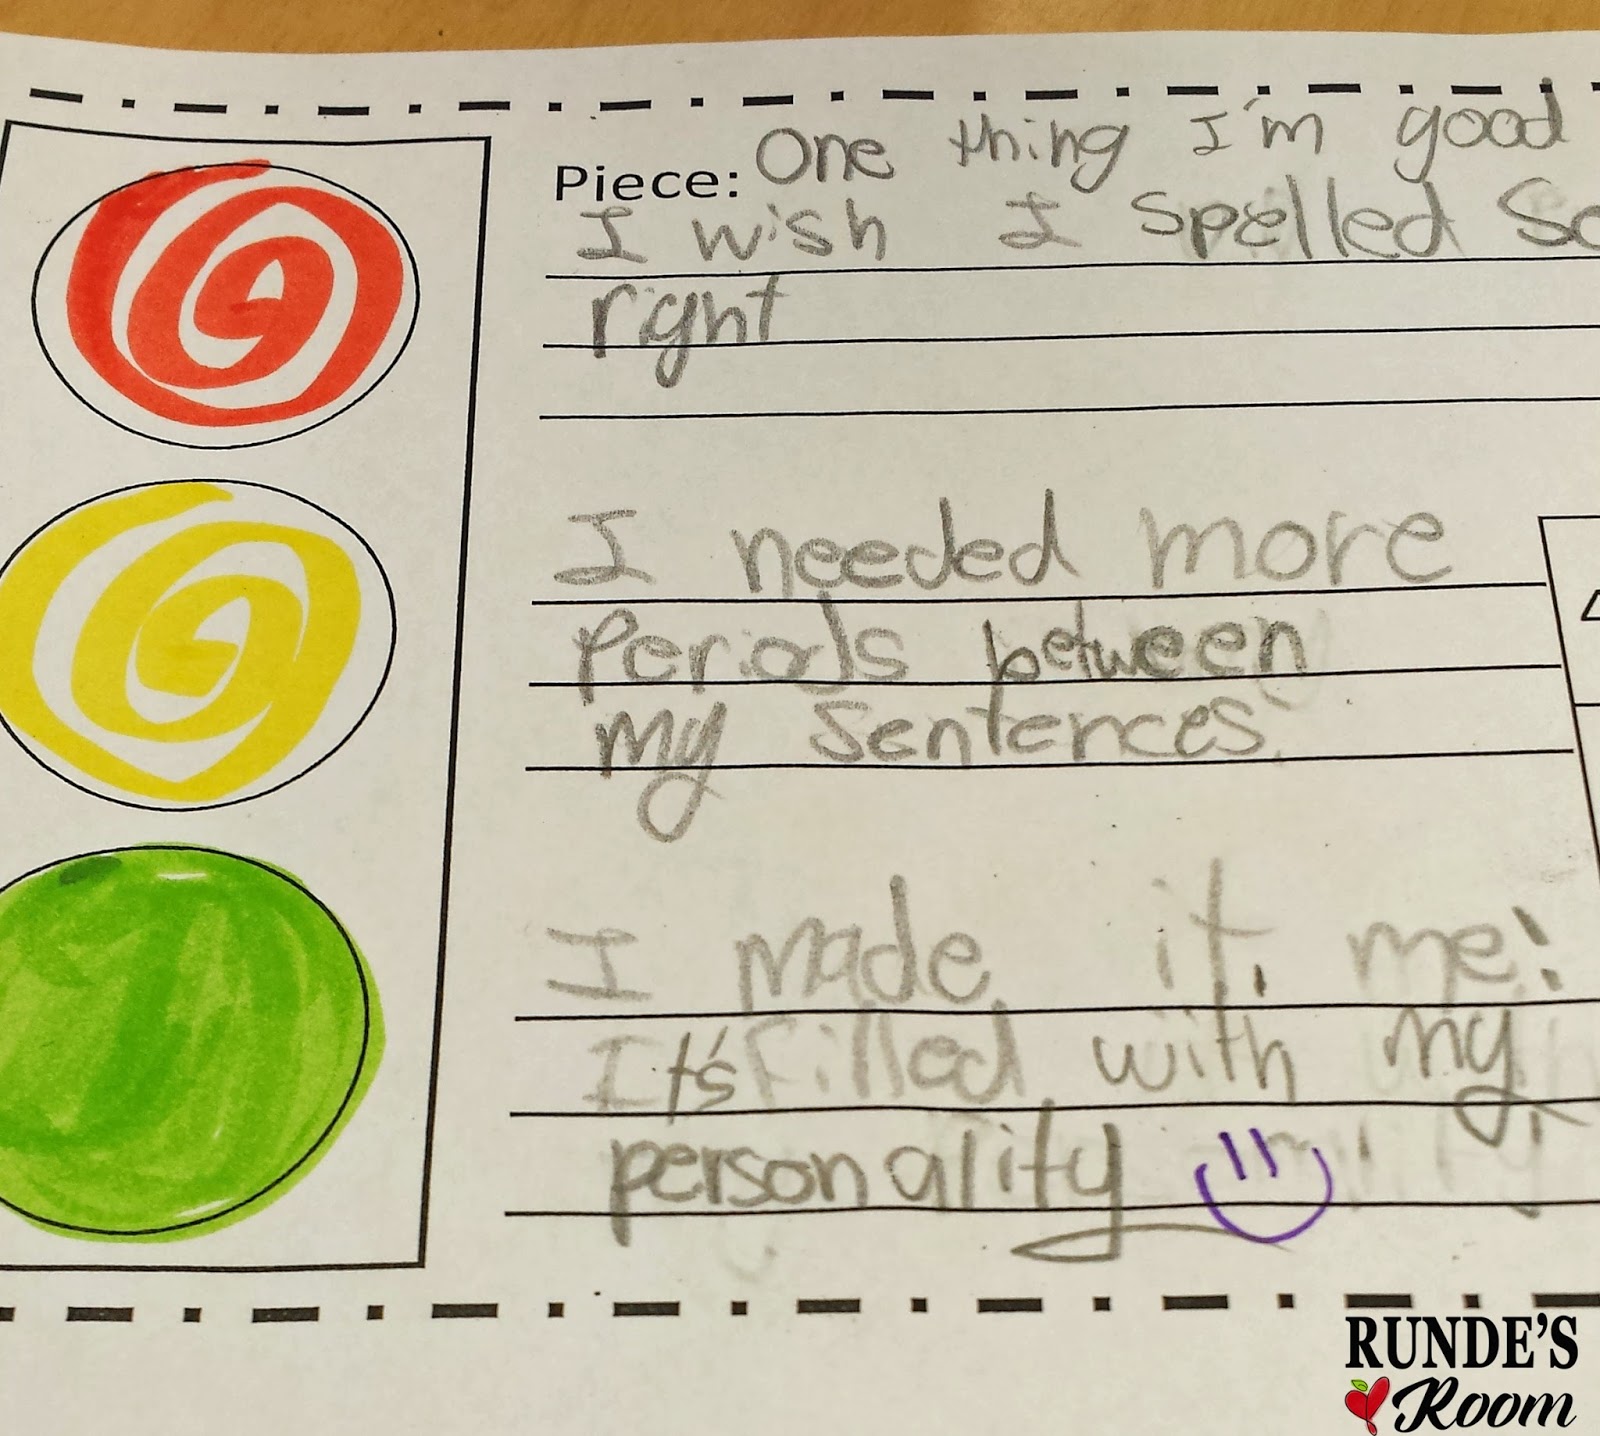 Piece: One thing I'm good
I wish I spelled
right
I needed more
Periods between
my sentences.
I made it me!
It's filled with my
personality
RUNDE'S
Room